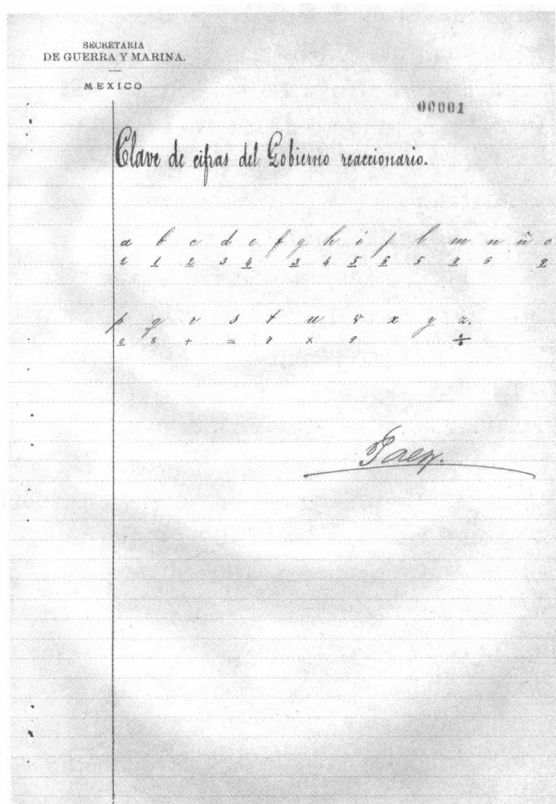 SECRETARIA
DE GUERRA Y MARINA.
MEXICO
00001
Clave de cifras del Gobierno reaccionario.
a b c d e f g h i j l m n ñ o
1 2 3 4 3 4 5 6 5 6
p q r s t u v x y z.
8 + = 9 x 9
Paez.